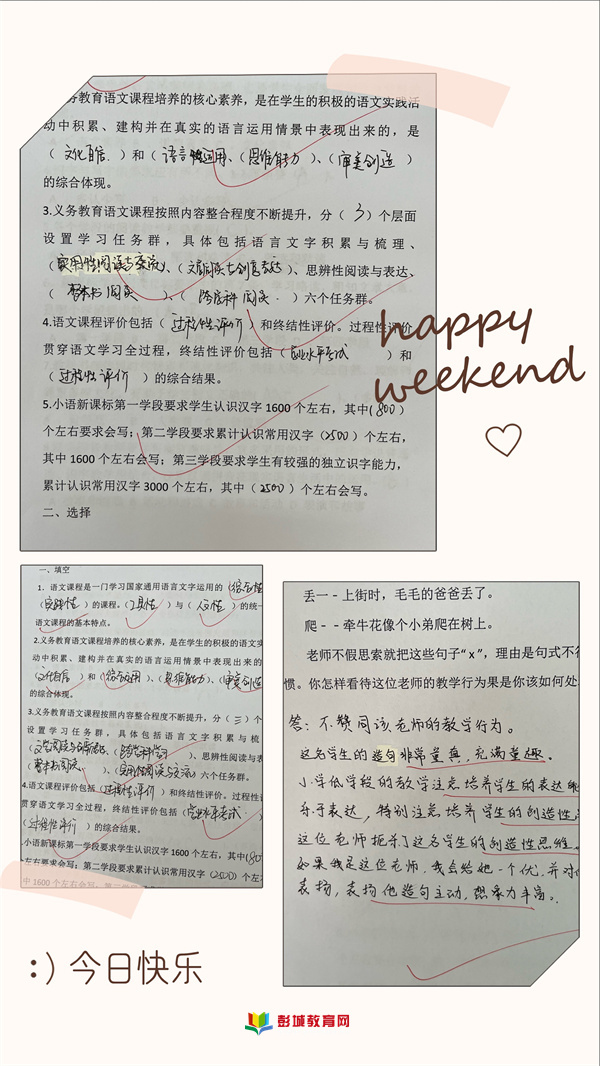 务教育语文课程培养的核心素养，是在学生的积极的语文实践活
动中积累、建构并在真实的语言运用情景中表现出来的，是
（文化自信）和（语言运用、（思维能力）、（审美创造）
的综合体现。
3.义务教育语文课程按照内容整合程度不断提升，分（3）个层面
设置学习任务群，具体包括语言文字积累与梳理、
（实用性阅读与交流）、（文学阅读与创意表达）、思辨性阅读与表达、
（整本书阅读）、（跨学科阅读）六个任务群。
4.语文课程评价包括（过程性评价）和终结性评价。过程性评价
贯穿语文学习全过程，终结性评价包括（学业水平考试）和
（过程性评价）的综合结果。
5.小语新课标第一学段要求学生认识汉字1600个左右，其中（800）
个左右要求会写；第二学段要求累计认识常用汉字（2500）个左右，
其中1600个左右会写；第三学段要求学生有较强的独立识字能力，
累计认识常用汉字3000个左右，其中（2500）个左右会写。
二、选择
happy
weekend
一、填空
1. 语文课程是一门学习国家通用语言文字运用的（综合性
（实践性）的课程。（工具性）与（人文性）的统一
语文课程的基本特点。
2.义务教育语文课程培养的核心素养，是在学生的积极的语文实
动中积累、建构并在真实的语言运用情景中表现出来的
（文化自信）和（语言运用）、（思维能力）、（审美创造
的综合体现。
3.义务教育语文课程按照内容整合程度不断提升，分（三）个
设置学习任务群，具体包括语言文字积累与梳
（文学阅读与创意表达）、（跨学科学习）、思辨性阅读与表
（整本书阅读）、（实用性阅读与交流）六个任务群。
4.语文课程评价包括（过程性评价）和终结性评价。过程性
贯穿语文学习全过程，终结性评价包括（学业水平考试）
（过程性评价）的综合结果。
.小语新课标第一学段要求学生认识汉字1600个左右，其中（80
左右要求会写；第二学段要求累计认识常用汉字（2500）个左
中1600个左右会写；
丢一--上街时，毛毛的爸爸丢了。
爬--牵牛花像个小弟爬在树上。
老师不假思索就把这些句子“x”，理由是句式不符
惯。你怎样看待这位老师的教学行为果是你该如何处
答：不赞同该老师的教学行为。
这名学生的造句非常童真，充满童趣。
小学低学段的教学注意培养学生的表达
乐于表达，特别注意培养学生的创造性
这位老师扼杀了这名学生的创造性思维。
如果我是这位老师，我会给她一个优，并对
表扬，表扬他造句主动，想象力丰富。
:) 今日快乐
彭城教育网